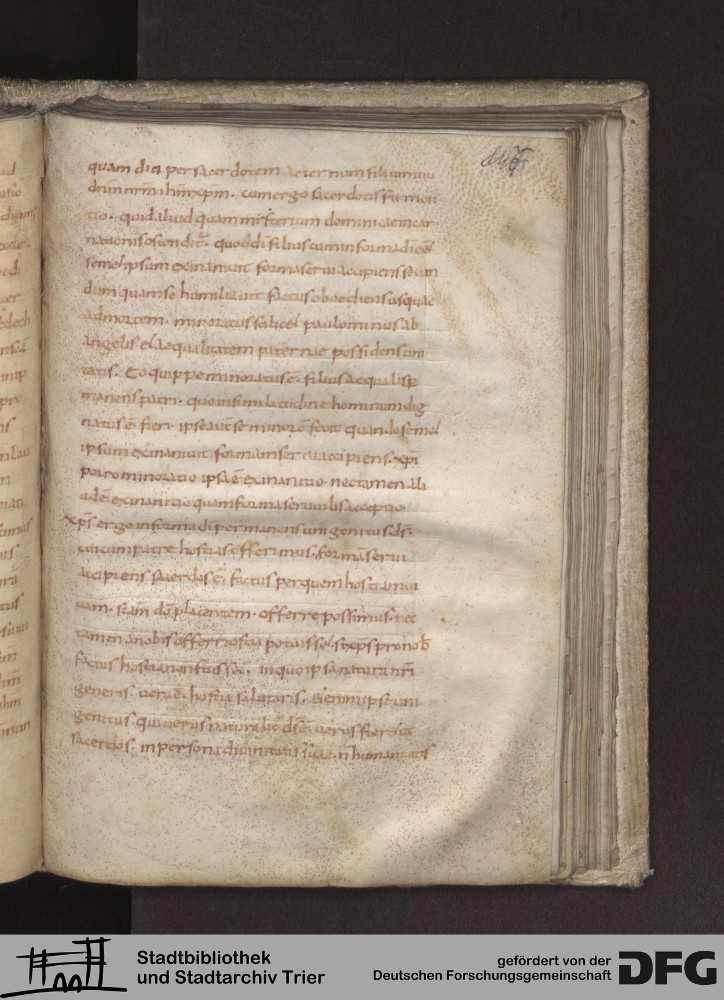 quam dici per sacerdotem aeternum filium tuu
dnm nrm ihm xpm. cum ergo sacerdotis fit men
tio. quid aliud quam misterium dominicae incar
nationis ostendit. quod di filius cum in forma di eet
semet ipsum exinanivit forma servi accipiens secun
dum quam se humiliavit factus oboediens usque
ad mortem. minoratus scilicet paulo minus ab
angelis et aequalitatem paternae possidens uni
tatis. Eo quippe minoratus e. filius aequalis p
manens patri. quo in similitudine hominum dig
natus e fieri. ipse aut se minore fecit quando semet
ipsum exinanivit formam servi accipiens. xpi
porro minoratio ipsa e exinanitio. nec tamen ali
ud e exinanitio quam forma servilis acceptio
xps ergo in forma di permanens unigenitus ds.
cui cum patre hostias offerimus. forma servi
accipiens sacerdos e factus per quem hostia vi
vam. scam do placentem. offerre possimus. nec
tamen a nobis offerri hostia potuisset. si xps pro nob
factus hostia non fuisset. in quo ipsa natura nri
generis. vera e. hostia salutaris.
genitus qui verus naturalit ds e verus
sacerdos. in persona divinitatis suae n humanitatis
Stadtbibliothek
und Stadtarchiv Trier
gefördert von der
Deutschen Forschungsgemeinschaft
DFG